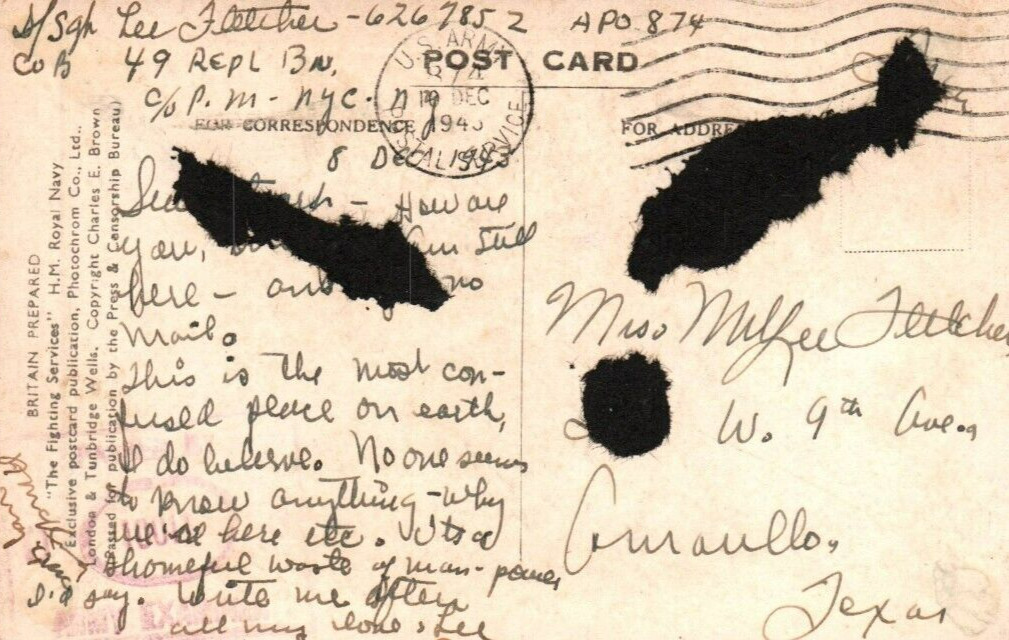 S/Sgt Lee Fletcher - 6267852 APO 874
Co B 49 REPL BN,
c/o P. M - NYC - NY
POST CARD
FOR CORRESPONDENCE
FOR ADDRE
U.S. ARMY
DEC
194
POSTAL SERVICE
8 DEC 1943
- How are
you, Am still
here - and no
mail.
This is the most con-
fused place on earth,
I do believe. No one seems
to know anything - why
we're here etc. Its a
shameful waste of man-power
I'd say. Write me often
all my love, Lee
Miss Fletcher
W. 9th Ave.
Amarillo,
Texas
BRITAIN PREPARED
"The Fighting Services" H.M. Royal Navy
Exclusive postcard publication, Photochrom Co., Ltd.,
London & Tunbridge Wells. Copyright Charles E. Brown
(Passed for publication by the Press & Censorship Bureau)